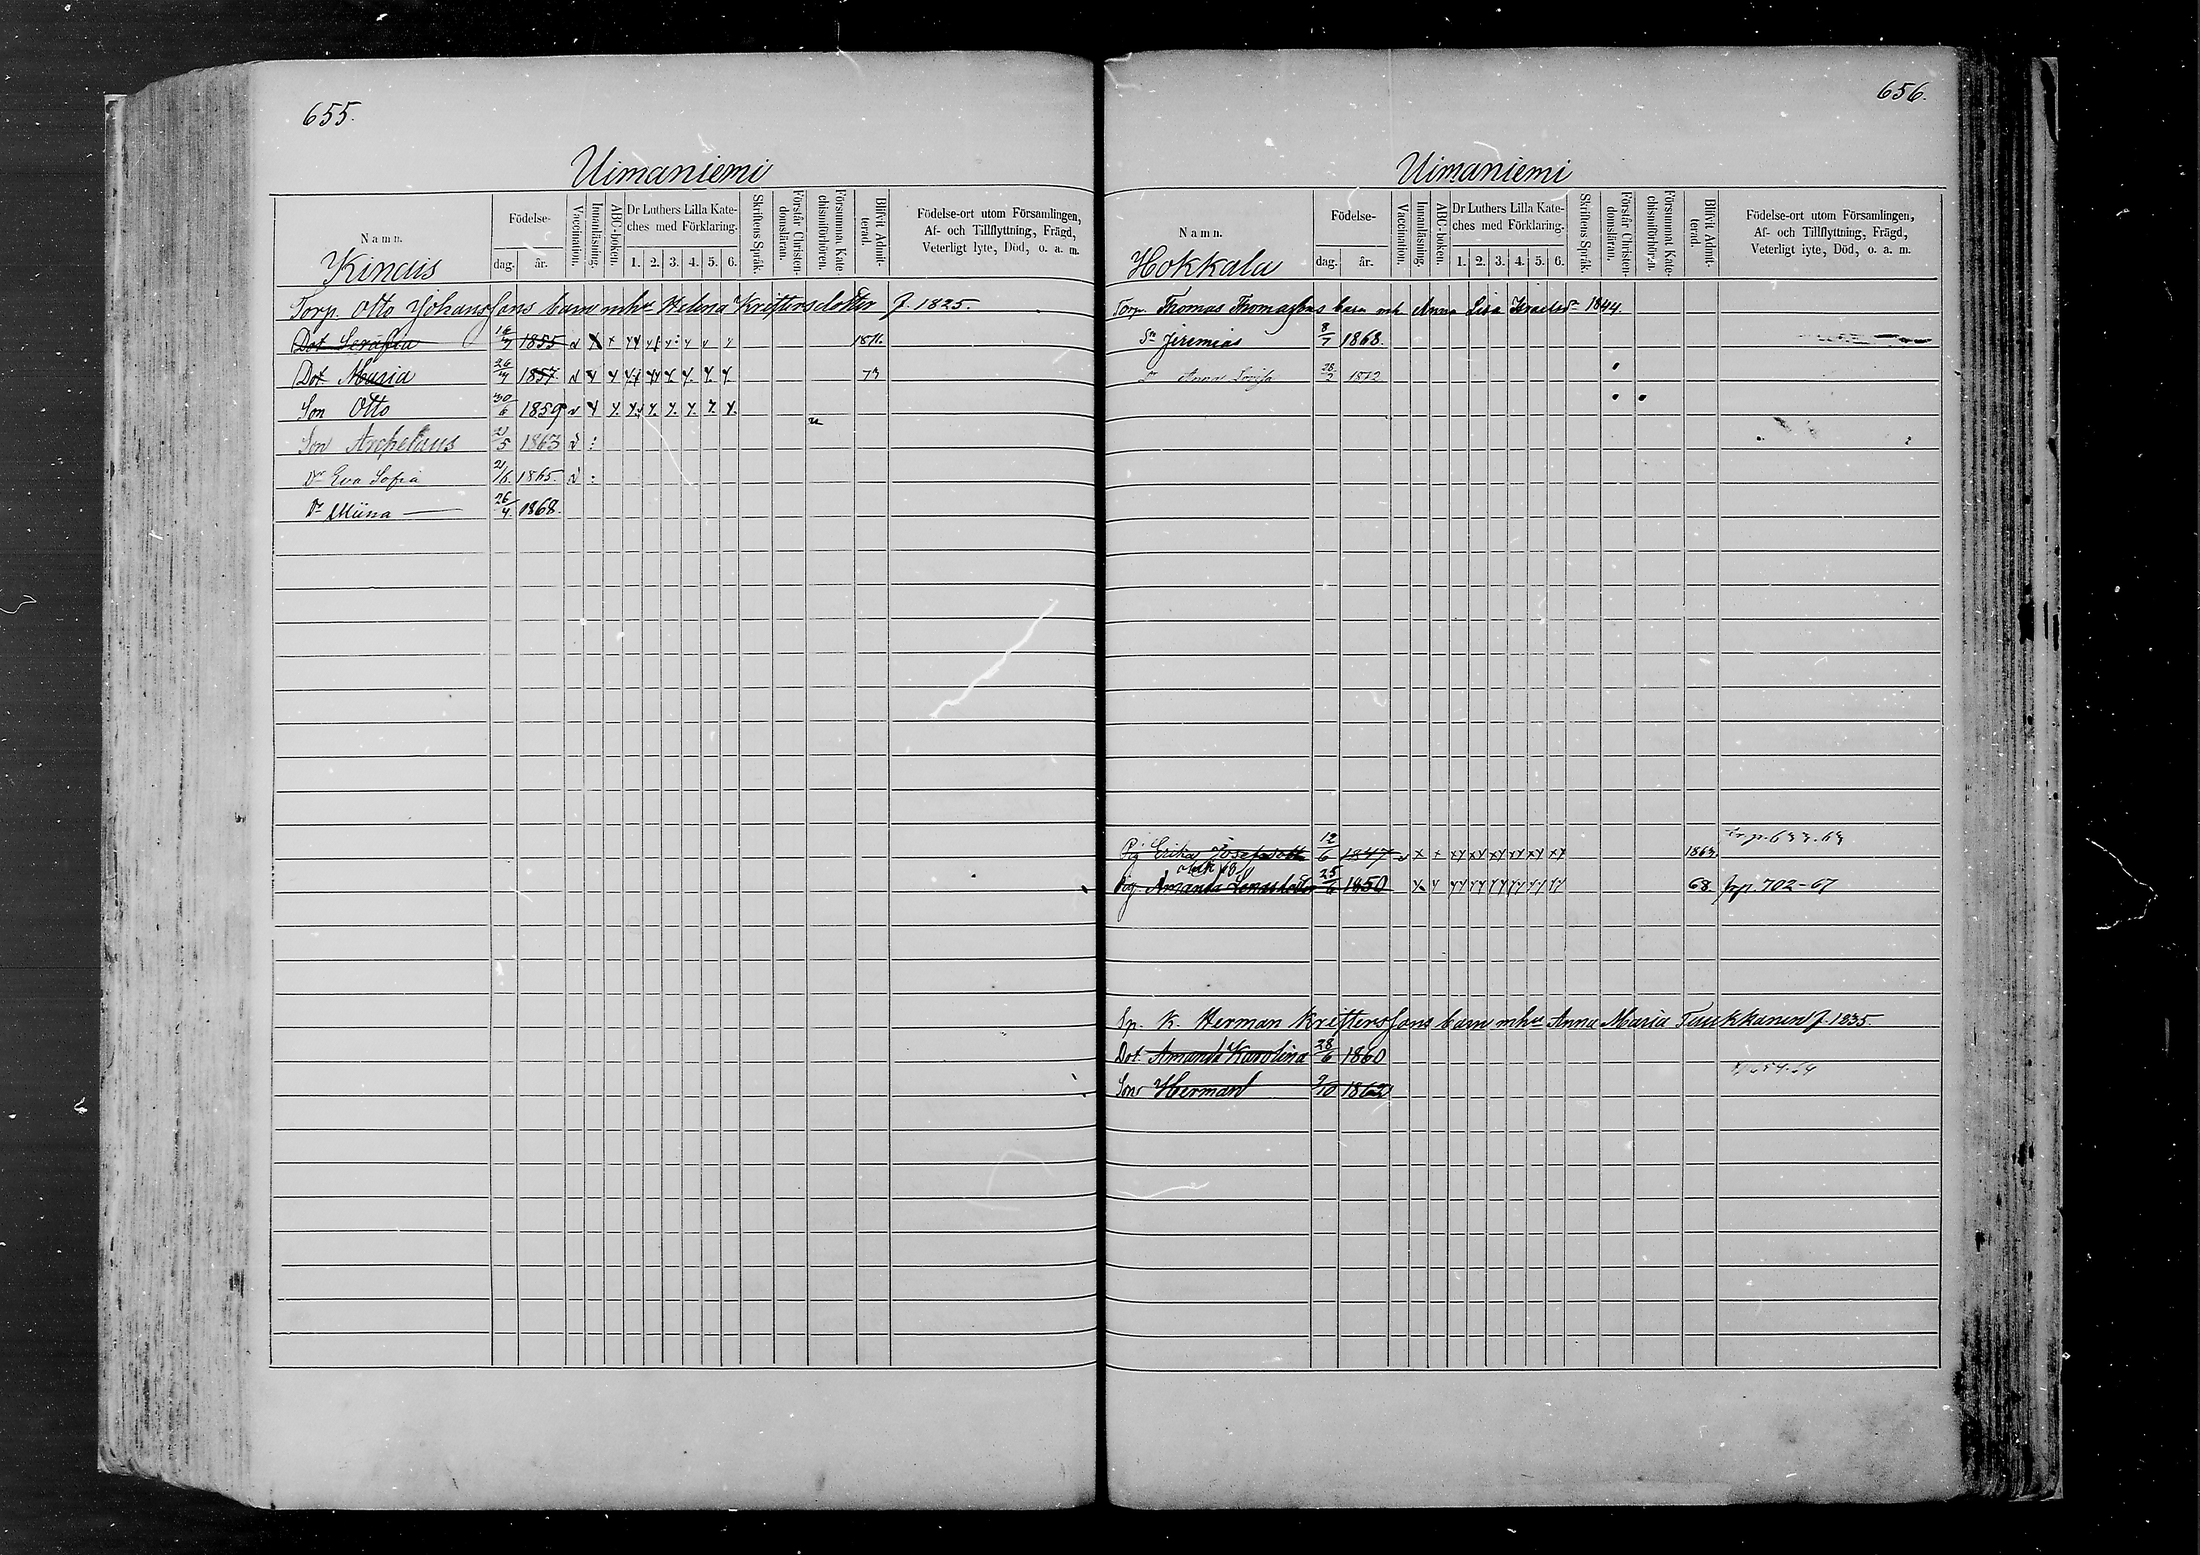 655.
Uimaniemi
Namn.
Födelse-
dag.
år.
Vaccination.
Innanläsning.
ABC-boken.
Dr Luthers Lilla Kate-
ches med Förklaring.
1. 2. 3. 4. 5. 6.
Skriftens Språk.
Förstår Christen-
domsläran.
Försummat Kate-
chismiförhören.
Blifvit Admit-
terad.
Födelse-ort utom Församlingen,
Af- och Tillflyttning, Frägd,
Veterligt lyte, Död, o. a. m.
Kinais
Torp. Otto Johanssons barn mhu Helena Kristersdotter f. 1825.
Dot Serafia 1855 1871.
Dot Maria 26/4 1857 73
Son Otto 30/6 1859
Son Archelaus 21/5 1863
Dr Eva Sofia 21/6. 1865.
Dr Miina 26/4. 1868.
656.
Uimaniemi
Namn.
Födelse-
dag.
år.
Vaccination.
Innanläsning.
ABC-boken.
Dr Luthers Lilla Kate-
ches med Förklaring.
1. 2. 3. 4. 5. 6.
Skriftens Språk.
Förstår Christen-
domsläran.
Försummat Kate-
chismiförhören.
Blifvit Admit-
terad.
Födelse-ort utom Församlingen,
Af- och Tillflyttning, Frägd,
Veterligt lyte, Död, o. a. m.
Hokkala
Torp. Thomas Thomassons barn mh Anna Lisa Israelsdr 1844.
Sn Jeremias 8/7 1868.
Dr Anna Lovisa 28/2 1872
Pig Erika Josefsdott 12/6 1847 1863.
Pig. Amanda 25/6 1850 68 pp. 702-67
Sp. K. Herman Kristerssons barn mhu Anna Maria Tuukkanen f. 1835.
Dot. Amanda Karolina 28/6 1860
Son Herman 9/10 1862